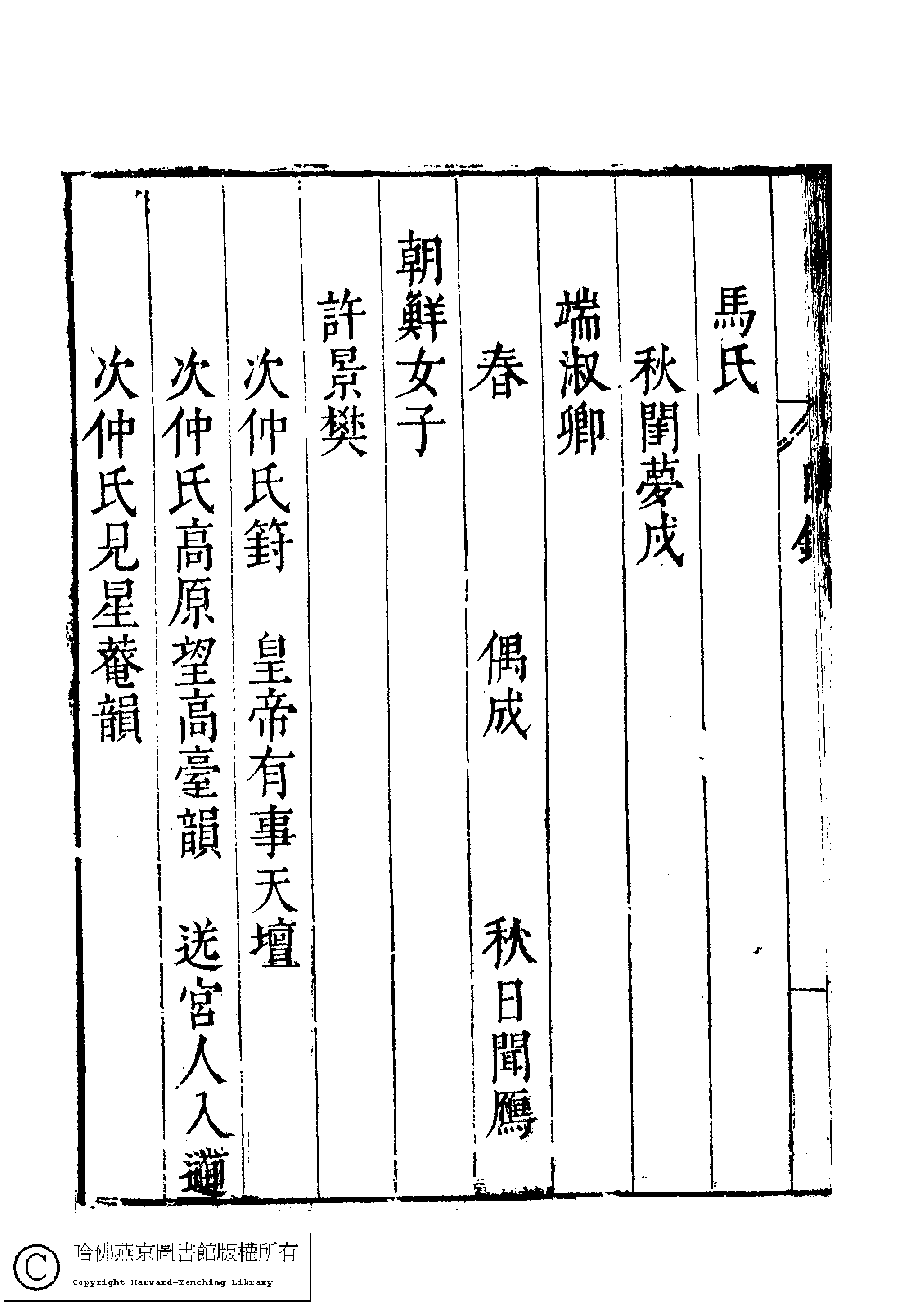 馬氏
秋閨夢戍
端淑卿
春　偶成　秋日聞鴈
朝鮮女子
許景樊
次仲氏篈　皇帝有事天壇
次仲氏高原望高臺韻　送宮人入道
次仲氏見星菴韻
哈佛燕京圖書館版權所有
Copyright Harvard-Yenching Library